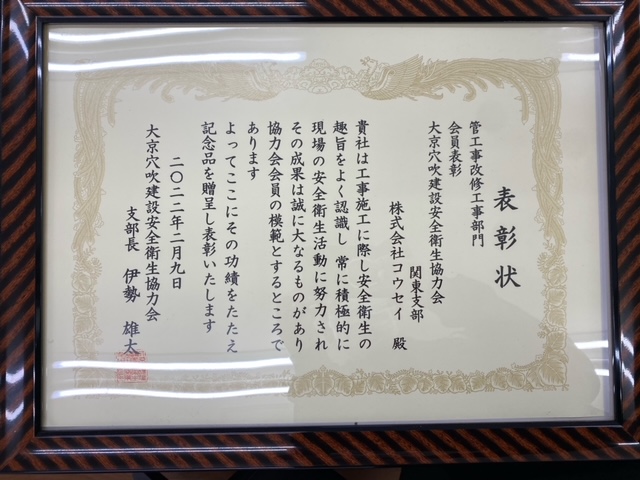 表彰状
管工事改修工事部門
会員表彰
大京穴吹建設安全衛生協力会
関東支部
株式会社コウセイ 殿
貴社は工事施工に際し安全衛生の
趣旨をよく認識し 常に積極的に
現場の安全衛生活動に努力され
その成果は誠に大なるものがあり
協力会会員の模範とするところで
あります
よってここにその功績をたたえ
記念品を贈呈し表彰いたします
二〇二二年二月九日
大京穴吹建設安全衛生協力会
支部長 伊勢 雄太